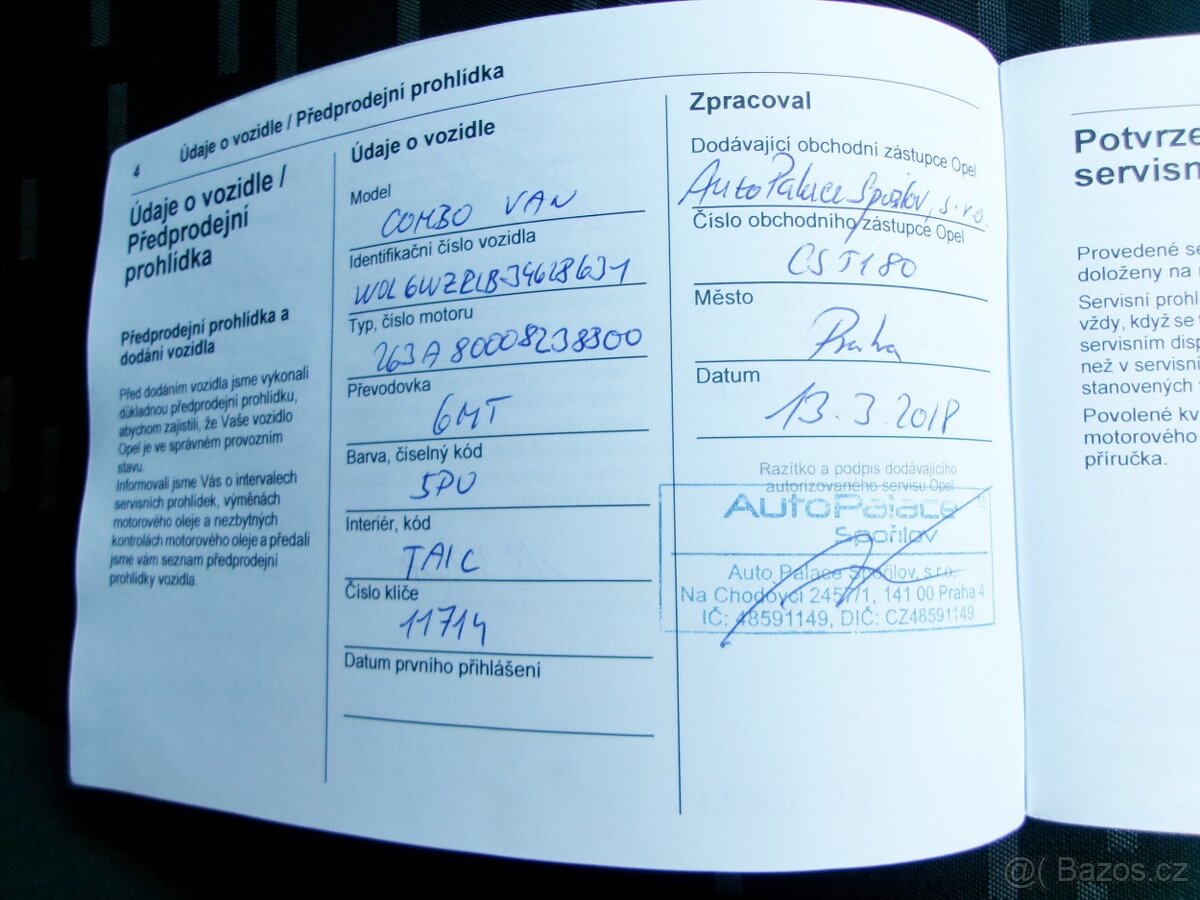 4
Údaje o vozidle / Předprodejní prohlídka
Údaje o vozidle /
Předprodejní
prohlídka
Předprodejní prohlídka a
dodání vozidla
Před dodáním vozidla jsme vykonali
důkladnou předprodejní prohlídku,
abychom zajistili, že Vaše vozidlo
Opel je ve správném provozním
stavu.
Informovali jsme Vás o intervalech
servisních prohlídek, výměnách
motorového oleje a nezbytných
kontrolách motorového oleje a předali
jsme vám seznam předprodejní
prohlídky vozidla.
Údaje o vozidle
Model
COMBO VAN
Identifikační číslo vozidla
Typ, číslo motoru
263A80008238300
Převodovka
6MT
Barva, číselný kód
5PU
Interiér, kód
TAIC
Číslo klíče
11714
Datum prvního přihlášení
Zpracoval
Dodávající obchodní zástupce Opel
Auto Palace Spořilov, s.r.o.
Číslo obchodního zástupce Opel
CST180
Město
Praha
Datum
13.3.2018
Razítko a podpis dodávajícího
autorizovaného servisu Opel
AutoPalace
Spořilov
Auto Palace Spořilov, s.r.o.
Na Chodovci 2457/1, 141 00 Praha 4
IČ: 48591149, DIČ: CZ48591149
Potvrze
servisn
Provedené se
doloženy na
Servisní prohl
vždy, když se
servisním disp
než v servisní
stanovených
Povolené kv
motorového
příručka.
@( Bazos.cz